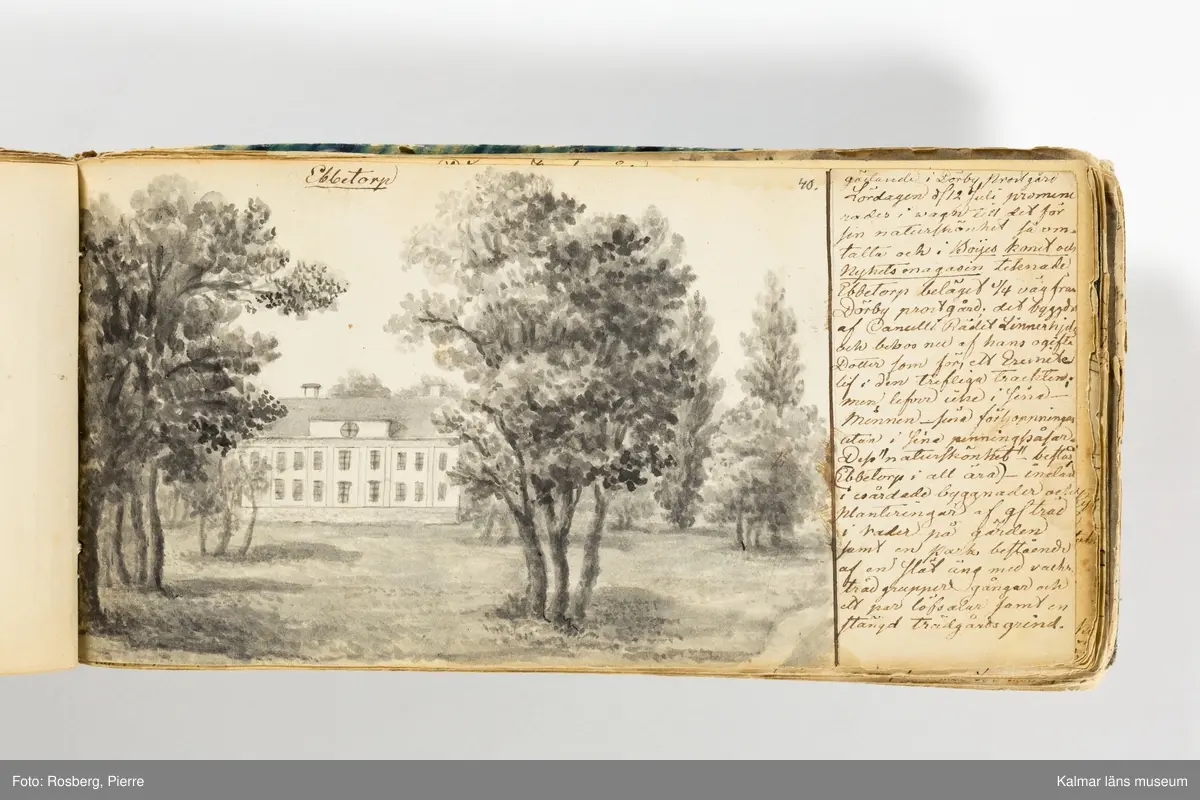 Ebbetorp
40.
gästande i Dörby Prostgård
Lördagen d/12 Juli promene
rades i vagn till det för
sin naturskönhet så om-
talta och i Boijes konst och
Nyhets magasin tecknade
Ebbetorp beläget 1/4 väg från
Dörby prostgård. det byggdes
af Cancelli Rådet Linnerhjelm
och bebos nu af hans ogifta
Dotter som för ett Eremite
lif i den trefliga trackten;
men lefver icke i sina
Minnen – sina förhoppningar
utan i sina penningpåsar.
Dess "naturskönhet" består
(Ebbetorp i all ära) – endast
i vårdade byggnader och
planteringar af gl träd
i rader på gården
samt en park bestående
af en slät äng med vackra
trädgrupper gångar och
ett par löfsalar samt en
stängd trädgårds grind.
Foto: Rosberg, Pierre
Kalmar läns museum